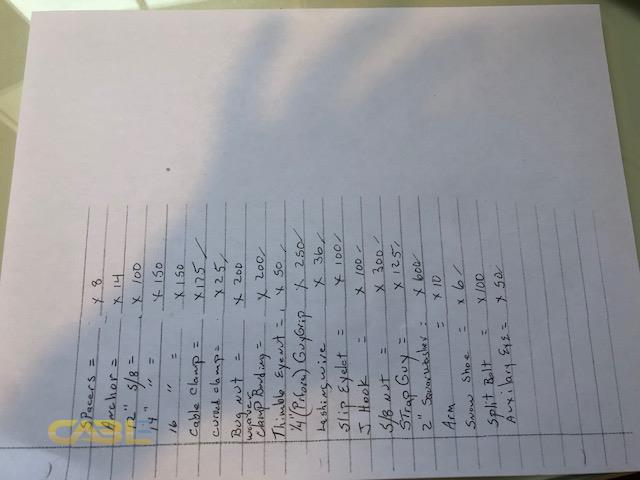 Spacers = x 8
Anchor = x 14
12" 5/8 = x 100
14" " = x 150
16 " = x 150
Cable Clamp = x 175
curved clamp = x 25
Bug nut = x 200
Clamp Bonding = x 200
Thimble Eyenut = x 50
1/4 (Preform) Guy Grip x 250
Lashing wire x 36
Slip Eyelet = x 100
J Hook = x 100
5/8 nut = x 300
Strap Guy = x 125
2" Squarewasher = x 600
Arm = x 10
Snow Shoe = x 6
Split Bolt = x 100
Auxiliary Eye = x 50
CABL